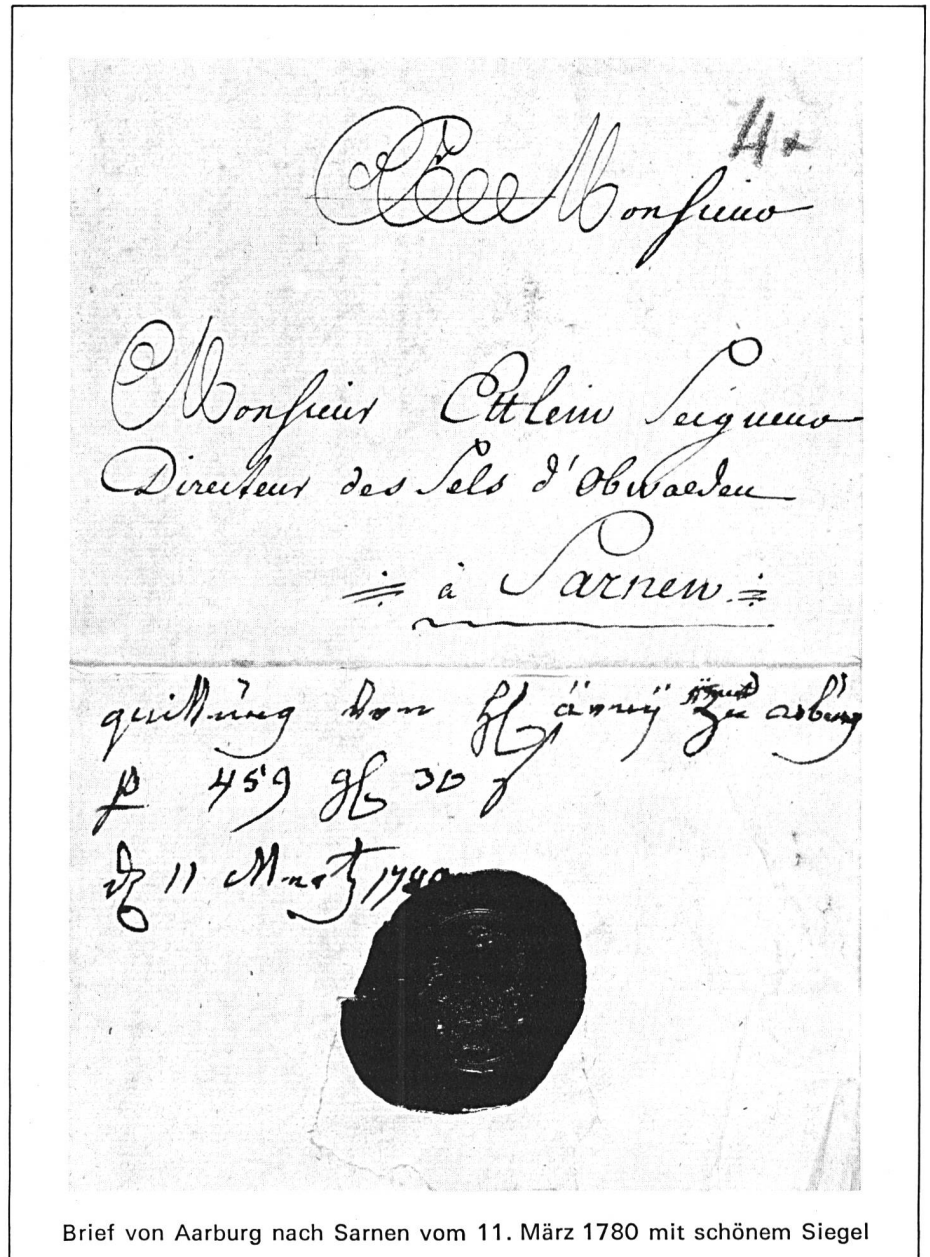 4
Monsieur
Monsieur Ettlein Seigneur
Directeur des Sels d'Obwalden
à Sarnen
quittung von änny zu arburg
p 459 gl 30
11 Mertz 1780
Brief von Aarburg nach Sarnen vom 11. März 1780 mit schönem Siegel